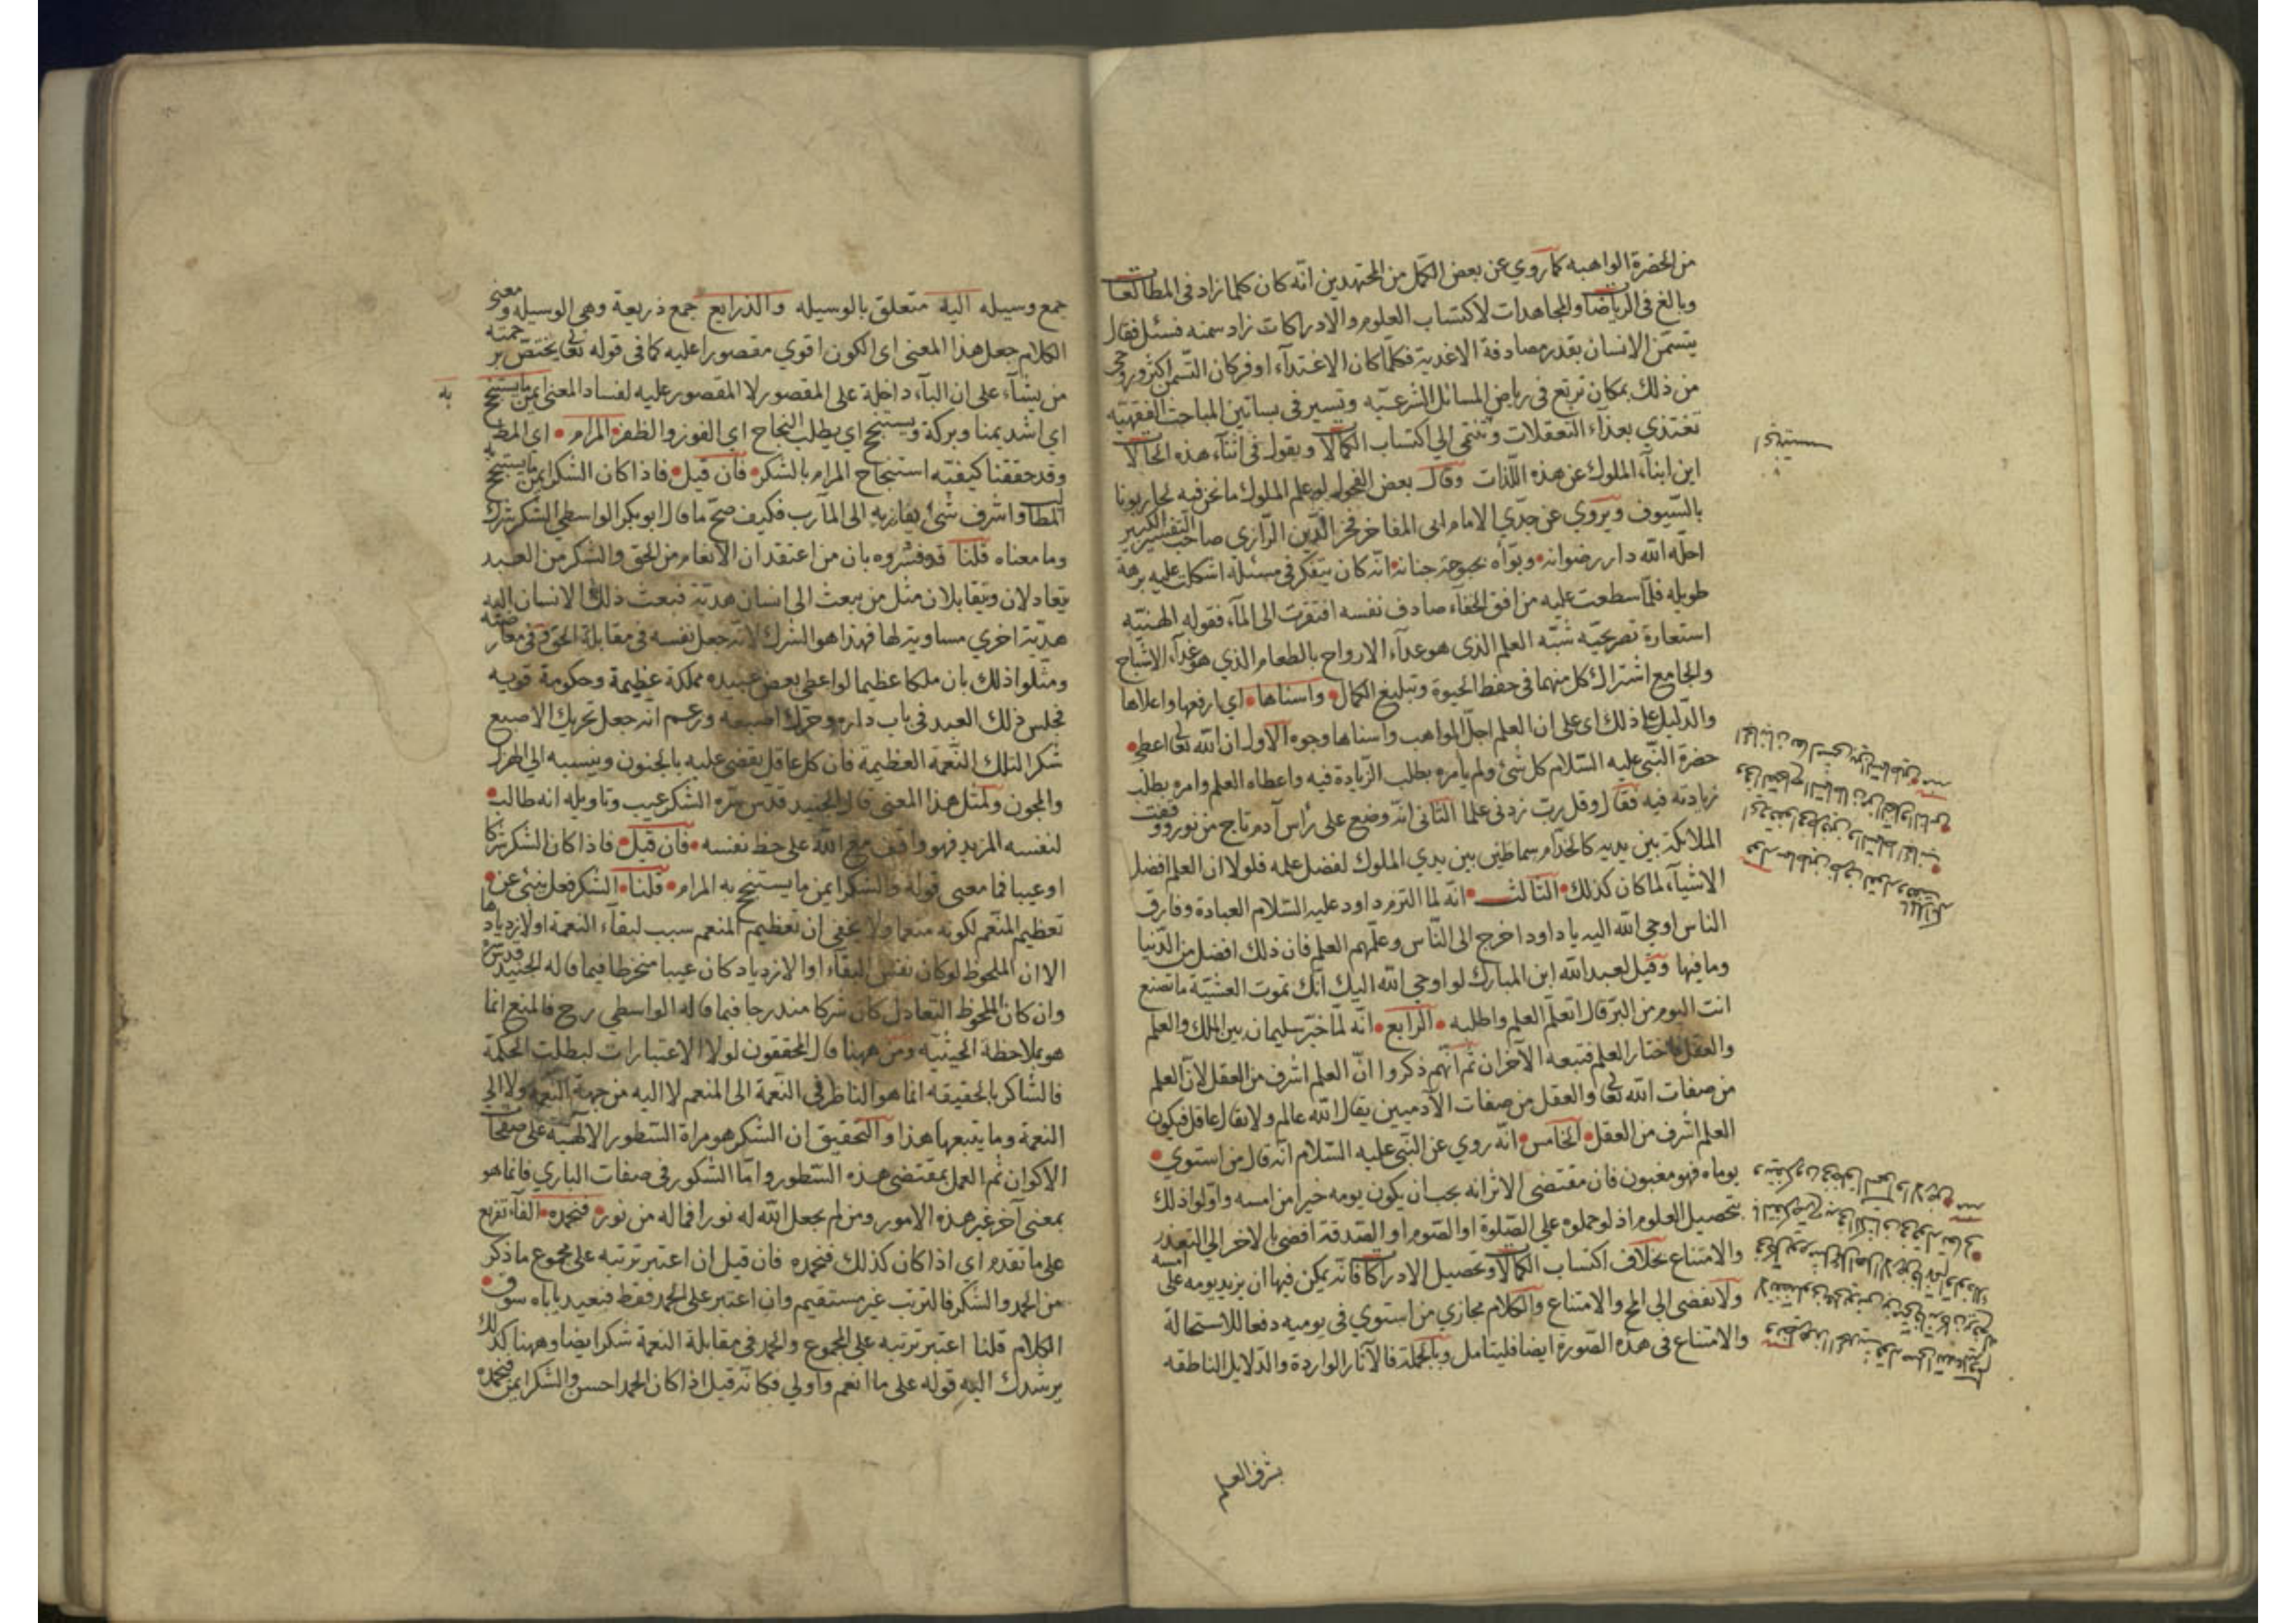 من الحضرة الواهبه كما روي عن بعض الكمّل من المجتهدين انّه كان كلما زاد فى المطالعات
وبالغ فى الرياضات والمجاهدات لاكتساب العلوم والادراكات زاد سمنه فسئل فقال
يتسمّن الانسان بقدر مصادفة الاغذية فكلّما كان الاغتذآء اوفر كان التّسمن اكثر وروحى
من ذلك بمكان ترتع فى رياض المسائل الشرعيّه وتسير فى بساتين المباحث الفقهيّه
تغتذي بغذآء التعقلات وتنتمي الي اكتساب الكمالات ويقول فى اثنآء هذه الحالات
اين ابنآء الملوك عن هذه اللّذات وقال بعض الفحول لو علم الملوك ما نحن فيه لحاربونا
بالسّيوف ويروي عن جدّي الامام ابى المفاخر فخر الدّين الرّازي صاحب التفسير الكبير
احلّه الله دار رضوانه وبوّأه بحبوحة جنانه انّه كان يتفكّر فى مسئلة اشكلت عليه برهة
طويله فلمّا سطعت عليه من افق الخفآء صادف نفسه افتقرت الى المآء فقوله الهنيّه
استعارة تصريحيّه شبّه العلم الذى هو غذآء الارواح بالطعام الذي هو غذآء الاشباح
والجامع اشتراك كل منهما فى حفظ الحيوة وتبليغ الكمال واسناها اي ارفعها واعلاها
والدّليل على ذلك اى على ان العلم اجلّ المواهب واسناها وجوه الاول ان الله تعالى اعطى
حضرة النّبى عليه السّلام كل شئ ولم يأمره بطلب الزّيادة فيه واعطاه العلم وامره بطلب
زيادته فيه فقال وقل ربّ زدنى علما الثانى انّه وضع على رأس آدم تاج من نور ووقفت
الملائكة بين يديه كالخدّام سماطين بين يدي الملوك لفضل علمه فلولا ان العلم افضل
الاشيآء لما كان كذلك الثالث انّه لما التزم داود عليه السّلام العبادة وفارق
الناس اوحي الله اليه يا داود اخرج الى النّاس وعلّمهم العلم فان ذلك افضل من الدّنيا
وما فيها وقيل لعبد الله ابن المبارك لو اوحي الله اليك انّك تموت العشيّة ما تصنع
انت اليوم من البرّ قال اتعلّم العلم واطلبه الرابع انّه لمّا خيّر سليمان بين الملك والعلم
والعقل فاختار العلم فتبعه الآخران ثم انّهم ذكروا انّ العلم اشرف من العقل لانّ العلم
من صفات الله تعالى والعقل من صفات الآدميين يقال الله عالم ولا يقال عاقل فيكون
العلم اشرف من العقل الخامس انّه روي عن النّبى عليه السّلام انّه قال من استوي
يوماه فهو مغبون فان مقتضى الاثر انه يجب ان يكون يومه خيرا من امسه واوّلوا ذلك
بتحصيل العلوم اذ لو حملوه على الصّلوة او الصّوم او الصّدقة افضى بالآخر الي التعذر
والامتناع بخلاف اكتساب الكمالات وتحصيل الادراكات فانّه يمكن فيها ان يزيد يومه على امسه
ولا يفضى الي المح والامتناع والكلام مجازي من استوي فى يوميه دفعا للاستحالة
والامتناع فى هذه الصّورة ايضا فليتامل وبالجملة فالآثار الواردة والدّلايل الناطقه
بشرف العلم
جمع وسيله اليه متعلق بالوسيله والذرايع جمع ذريعة وهى الوسيله ومعنى
الكلام جعل هذا المعنى اى الكون اقوي مقصورا عليه كما فى قوله تعالى يختصّ برحمته
من يشآء على ان البآء داخلة على المقصور لا المقصور عليه لفساد المعنى ايمن ما يستنجح
به
اي اشد يمنا وبركة ويستنجح اي يطلب النجاح اي الفوز والظفر المرام اى المط
وقد حققنا كيفيّة استنجاح المرام بالشكر فان قيل فاذا كان الشكر ايمن ما يستنجح به
المطالب واشرف شئ يفاز به الى المآرب فكيف صحّ ما قال ابو بكر الواسطي الشكر شرك
وما معناه قلنا قد فسّروه بان من اعتقد ان الانعام من الحق والشكر من العبد
يتعادلان ويتقابلان مثل من يبعث الى انسان هديّة فبعث ذلك الانسان اليه
هديّة اخري مساوية لها فهذا هو الشرك لانّه جعل نفسه فى مقابلة الحق وفى معارضته
ومثّلوا ذلك بان ملكا عظيما لو اعطى بعض عبيده مملكة عظيمة وحكومة قويه
فجلس ذلك العبد فى باب داره وحرّك اصبعه وزعم انه جعل تحريك الاصبع
شكرا لتلك النّعمة العظيمة فان كل عاقل يقضى عليه بالجنون وينسبه الي الهزل
والمجون ولمثل هذا المعنى قال الجنيد قدّس سرّه الشكر عيب وتاويله انه طالب
لنفسه المزيد فهو واقف مع الله على حظ نفسه فان قيل فاذا كان الشكر شركا
او عيبا فما معنى قوله والشكر ايمن ما يستنجح به المرام قلنا الشكر فعل ينبئ عن
تعظيم المنعم لكونه منعما ولا يخفى ان تعظيم المنعم سبب لبقآء النعمة او لازديادها
الا ان الملحوظ لو كان نفس البقآء او الازدياد كان عيبا منخرطا فيما قاله الجنيد قدس سره
وان كان الملحوظ التعادل كان شركا مندرجا فيما قاله الواسطي رح فالمنع انما
هو بملاحظة الحيثيّه ومن ههنا قال المحققون لولا الاعتبارات لبطلت الحكمة
فالشاكر بالحقيقه انما هو الناظر فى النّعمة الى المنعم لا اليه من جهة النّعمة ولا الي
النعمة وما يتبعها هذا والتحقيق ان الشكر هو مراة السّطور الالهيّه على صفحات
الاكوان ثم العمل بمقتضى هذه السّطور وامّا الشكور فى صفات الباري فانما هو
بمعنى آخر غير هذه الامور ومن لم يجعل الله له نورا فما له من نور فنحمده الفآء تفريع
على ما تقدم اي اذا كان كذلك فنحمده فان قيل ان اعتبر ترتبه على مجموع ما ذكر
من الحمد والشكر فالترتب غير مستقيم وان اعتبر على الحمد فقط فبعيد ياباه سوق
الكلام قلنا اعتبر ترتبه على المجموع والحمد فى مقابلة النعمة شكر ايضا وههنا كذلك
يرشدك اليه قوله على ما انعم واولي فكانّه قيل اذا كان الحمد احسن والشكر ايمن فنحمده